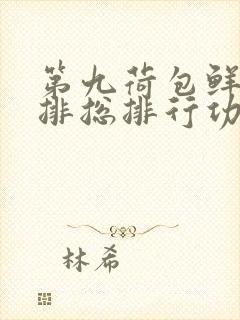 第九荷包鲜
排挖排行功
林希